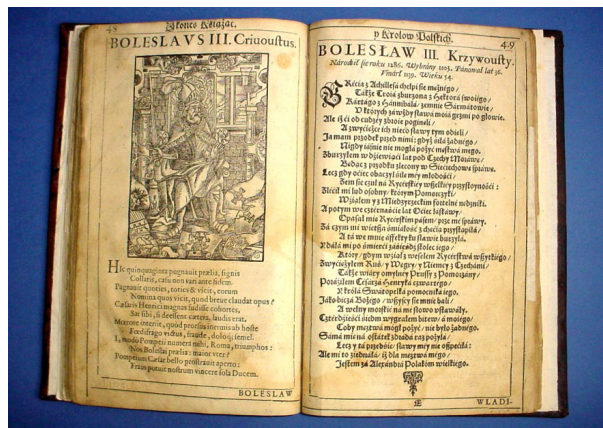 48
Skonec Książąt.
BOLESLAVS III. Criuouſtus.
HIc quinquaginta pugnauit prælia, ſignis
Collatis, caſu non vari ante fidem.
Pugnauit quoties, toties & vicit, eorum
Nomina quos vicit, quod breue claudat opus?
Cæſaris Henrici magnas fudiſſe cohortes,
Sat ſibi, ſi deſſent cætera, laudis erat.
Mœrore interiit, quod prœlia inermis ab hoſte
Perfidiâgo victus, fraude, doloq; ſemel.
I, modo Pompeii numera mihi, Roma, triumphos:
Nos Boleſlai prælia: maior vter?
Pompeium Cæſar bello proſtrauit aperto:
Fraus potuit noſtrum vincere ſola Ducem.
BOLESLAW
y Krolow Polſkich.
49
BOLESŁAW III. Krzywouſty.
Národził ſie roku 1286. Wybrány 1103. Pánował lat 36.
Vmárł 1139. Wieku 54.
GRecia z Achilleſa chełpi ſie mężnego/
Tákże Troiá zburzona z Hektorá ſwoiego/
Kártágo z Hánnibalá/ zemnie Sármátowie/
V ktorych záwżdy ſławá moiá grzmi po głowie.
Ale iż ći od cudzey zbroie poginęli/
A zwyćiężce ich nieco ſławy tym odięli/
Ja mam przodek przed nimi: gdyż śiłá żadnego/
Nigdy iáſnie nie mogłá pożyć męſtwá mego.
Zburzyłem w dźiewiąći lat pod Czechy Moráwę/
Będąc z przodku zlecony w Siećiechowe ſpráwę.
Lecz gdy oćiec obaczył śiłę mey młodośći/
Zem ſie czuł ná Rycerſkiey wſzelkiey przyſtoynośći:
Zlećił mi lud oſobny/ ktorym Pomorczyki/
Wźiąłem y z Międzyrzeckim fortelne nędzniki.
A potym we czternaście lat Oćiec łáſkáwy/
Opaſał mię Rycerſkim páſem/ prze mé ſpráwy.
Zá czym mi więtſza śmiáłość z chęćią przyſtąpiłá/
A tá we mnie áffekty ku ſławie burzyłá.
Ktory/ gdym wźiął z weſelem Rycerſtwá wſzyſtkiego/
Zwyćiężyłem Ruś/ y Węgry/ y Niemcy z Czechámi/
Tákże wiáry omylney Pruſſy z Pomorzány/
Poráźiłem Ceſárzá Henryká czwartego/
Y krolá Swátopełká pomocniká iego.
Jáko biczá Bożego/ wſzyſcy ſie mnie bali/
A wełny morſkie ná me ſłowo wſtawáły.
Czterdźieśći śiedm wygrałem bitew/ á moiego/
Coby męztwá mogł pożyć/ nie było żadnego.
Sámá mię ná oſtátek zdrádá raz pożyłá/
Lecz y tá przedśię/ ſławy mey nie oſzpećiłá:
Ale mi to ziednáłá/ iż dla męztwá mego/
Jeſtem zá Alexándrá Polakom wielkiego.
WLADI-